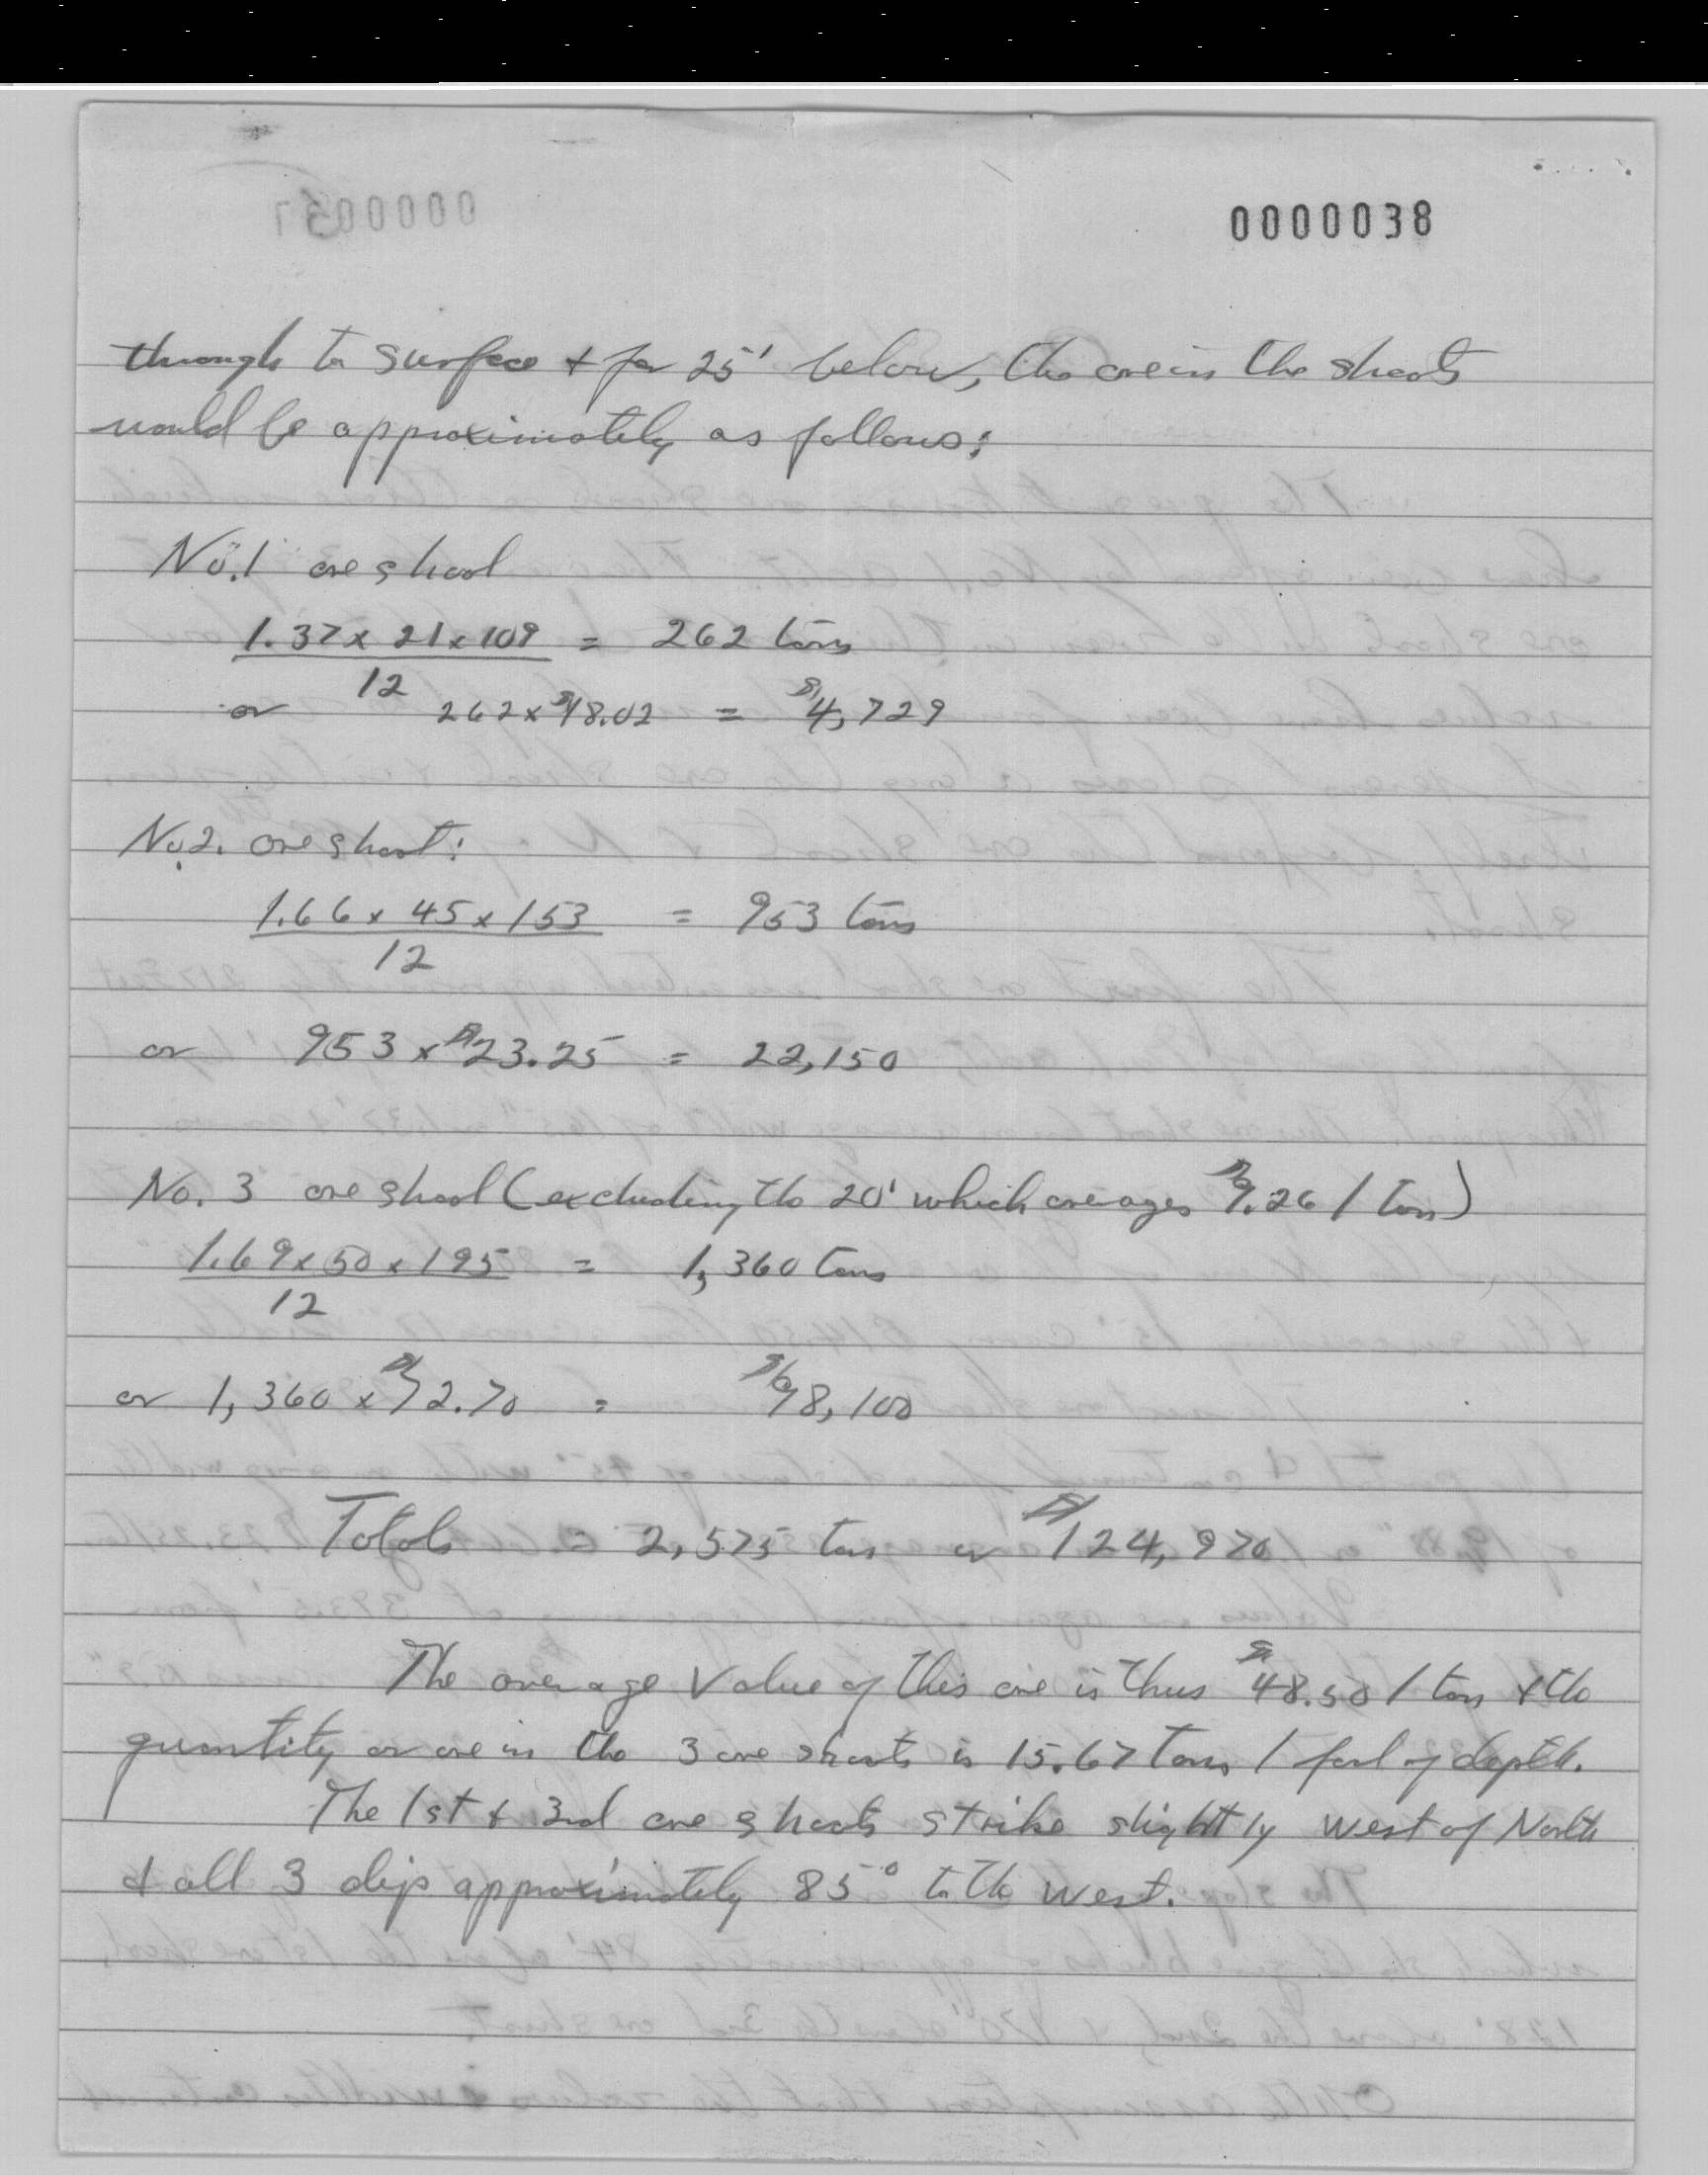 0000038
through to surface + for 25' below, the ore in the shoots
would be approximately as follows:
No. 1 ore shoot
1.37 x 21 x 109 = 262 tons
12
or 262 x $18.02 = $4,729
No. 2. ore shoot:
1.66 x 45 x 153 = 953 tons
12
or 953 x $23.25 = 22,150
No. 3 ore shoot (excluding the 20' which averages $9.26 / ton)
1.69 x 50 x 195 = 1,360 tons
12
or 1,360 x $72.70 = $98,100
Totals = 2,575 tons or $124,970
The average value of this ore is thus $48.50 / ton & the
quantity or ore in the 3 ore shoots is 15.67 tons / foot of depth.
The 1st & 3rd ore shoots strike slightly west of North
& all 3 dip approximately 85° to the west.